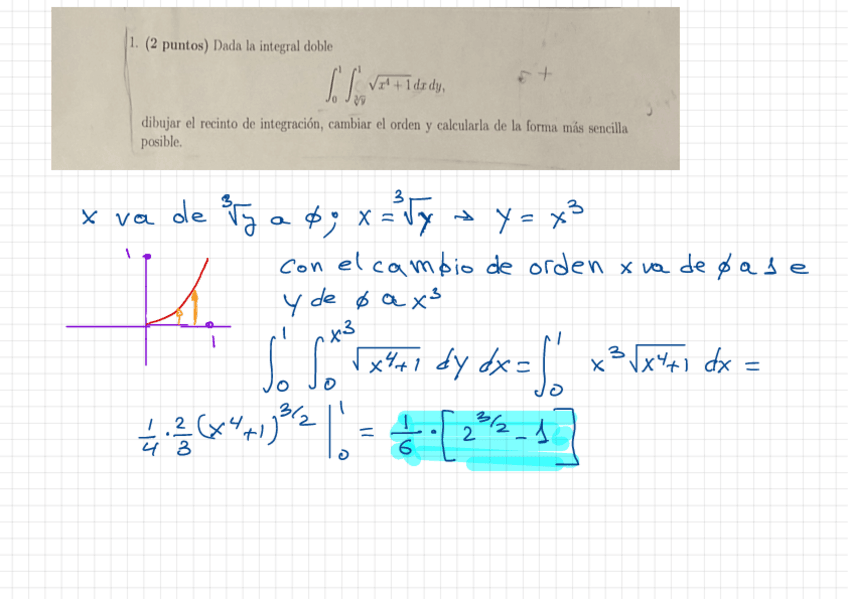 1. (2 puntos) Dada la integral doble
∫₀¹ ∫_{∛y}^1 √(x⁴ + 1) dx dy,
dibujar el recinto de integración, cambiar el orden y calcularla de la forma más sencilla
posible.
x va de ∛y a ϕ; x = ∛y → y = x³
1
Con el cambio de orden x va de ϕ a 1 e
y de ϕ a x³
1
∫₀¹ ∫₀^{x³} √(x⁴+1) dy dx = ∫₀¹ x³ √(x⁴+1) dx =
1/4 · 2/3 (x⁴+1)^{3/2} |₀¹ = 1/6 · [2^{3/2} - 1]